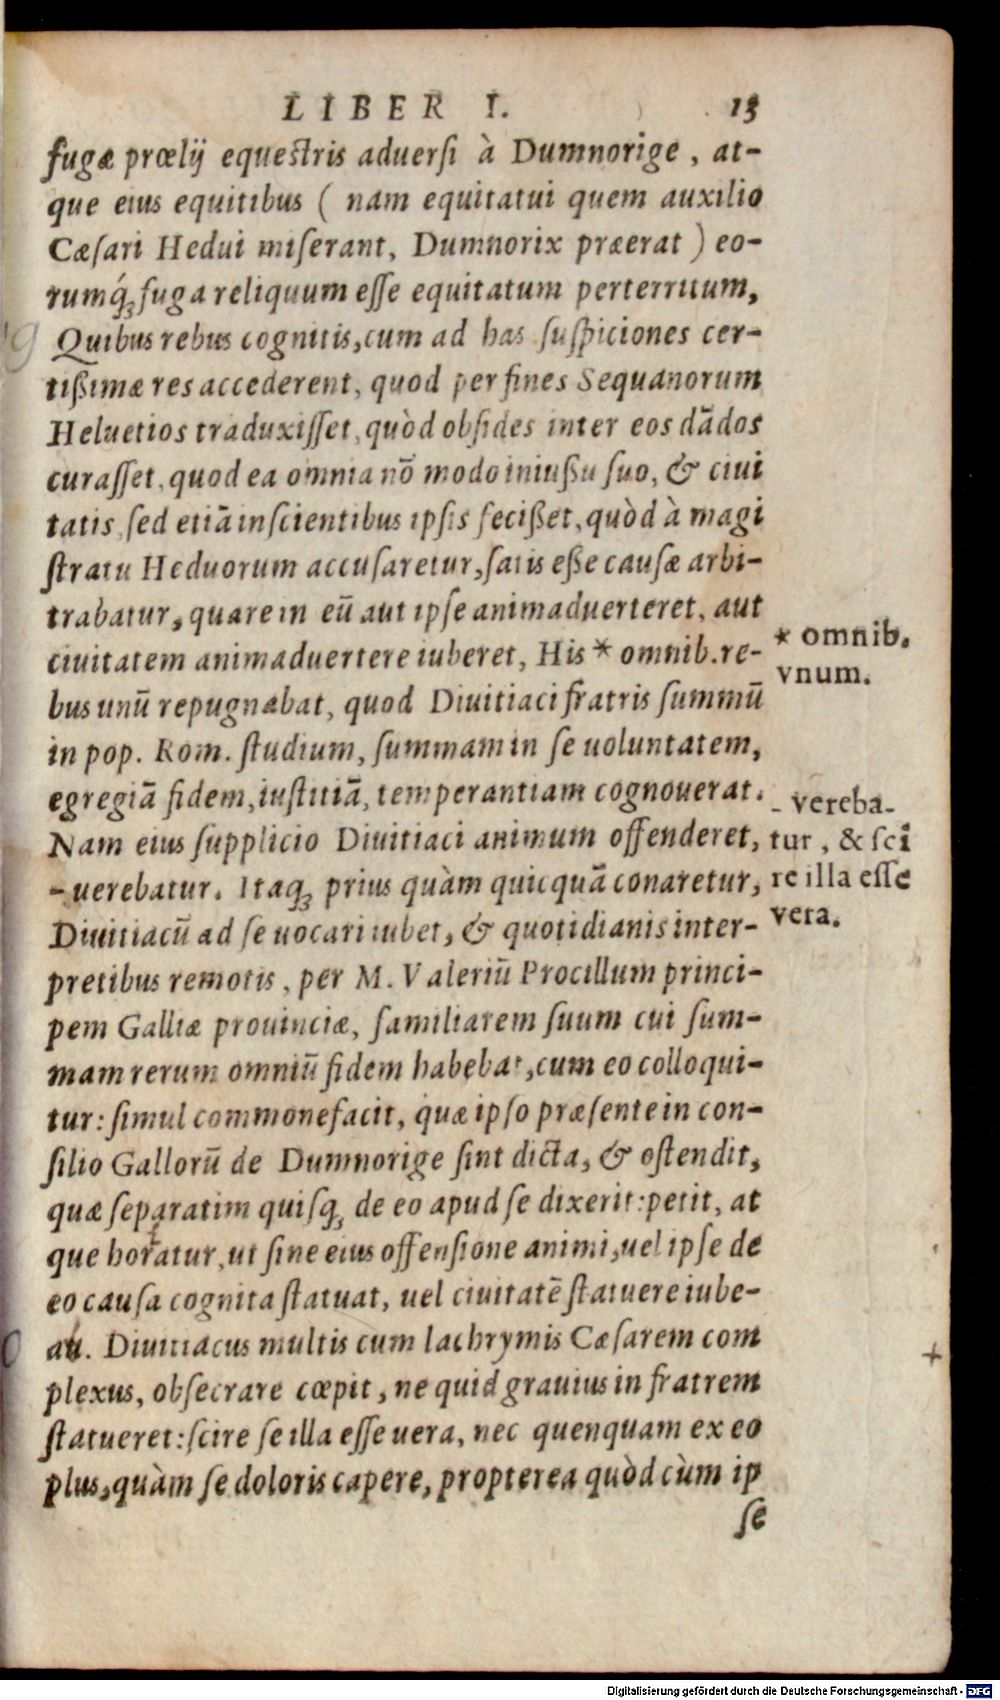 LIBER I. 13
fugæ prœlij equestris aduersi à Dumnorige, at-
que eius equitibus ( nam equitatui quem auxilio
Cæsari Hedui miserant, Dumnorix præerat ) eo-
rumq́ꝫ fuga reliquum esse equitatum perterritum,
Quibus rebus cognitis, cum ad has suspiciones cer-
tißimæ res accederent, quod per fines Sequanorum
Heluetios traduxisset, quòd obsides inter eos dãdos
curasset, quod ea omnia nõ modo iniußu suo, & ciui
tatis, sed etiã inscientibus ipsis fecißet, quòd à magi
stratu Heduorum accusaretur, satis eße causæ arbi-
trabatur, quare in eũ aut ipse animaduerteret, aut
ciuitatem animaduertere iuberet, His * omnib. re-
bus unũ repugnabat, quod Diuitiaci fratris summũ
in pop. Rom. studium, summam in se uoluntatem,
egregiã fidem, iustitiã, temperantiam cognouerat.
Nam eius supplicio Diuitiaci animum offenderet,
- uerebatur. Itaqꝫ prius quàm quicquã conaretur,
Diuitiacũ ad se uocari iubet, & quotidianis inter-
pretibus remotis, per M. Valeriũ Procillum princi-
pem Galliæ prouinciæ, familiarem suum cui sum-
mam rerum omniũ fidem habebat, cum eo colloqui-
tur: simul commonefacit, quæ ipso præsente in con-
silio Gallorũ de Dumnorige sint dicta, & ostendit,
quæ separatim quisqꝫ de eo apud se dixerit: petit, at
que horatur, ut sine eius offensione animi, uel ipse de
eo causa cognita statuat, uel ciuitatẽ statuere iube-
at. Diuitiacus multis cum lachrymis Cæsarem com
plexus, obsecrare cœpit, ne quid grauius in fratrem
statueret: scire se illa esse uera, nec quenquam ex eo
plus, quàm se doloris capere, propterea quòd cùm ip
se
* omnib.
vnum.
- vereba-
tur, & sci
re illa esse
vera.
Digitalisierung gefördert durch die Deutsche Forschungsgemeinschaft - DFG